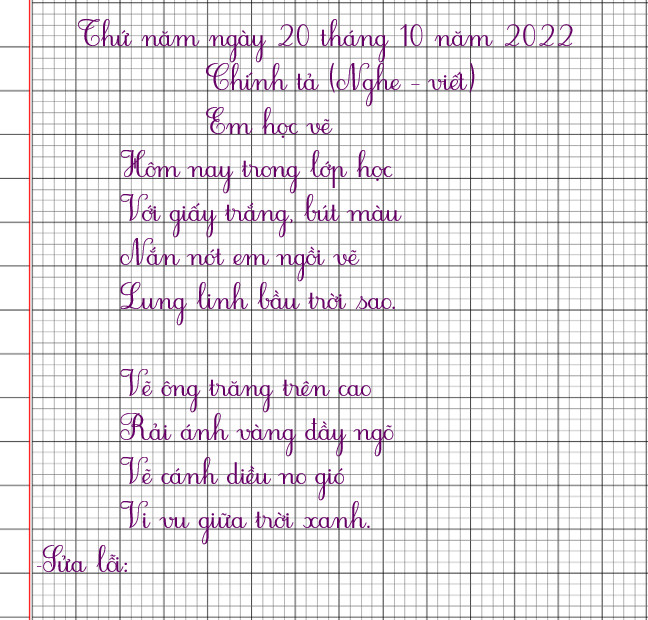 Thứ năm ngày 20 tháng 10 năm 2022
Chính tả (Nghe - viết)
Em học vẽ
Hôm nay trong lớp học
Với giấy trắng, bút màu
Nắn nót em ngồi vẽ
Lung linh bầu trời sao.
Vẽ ông trăng trên cao
Rải ánh vàng đầy ngõ
Vẽ cánh diều no gió
Vi vu giữa trời xanh.
-Sửa lỗi: